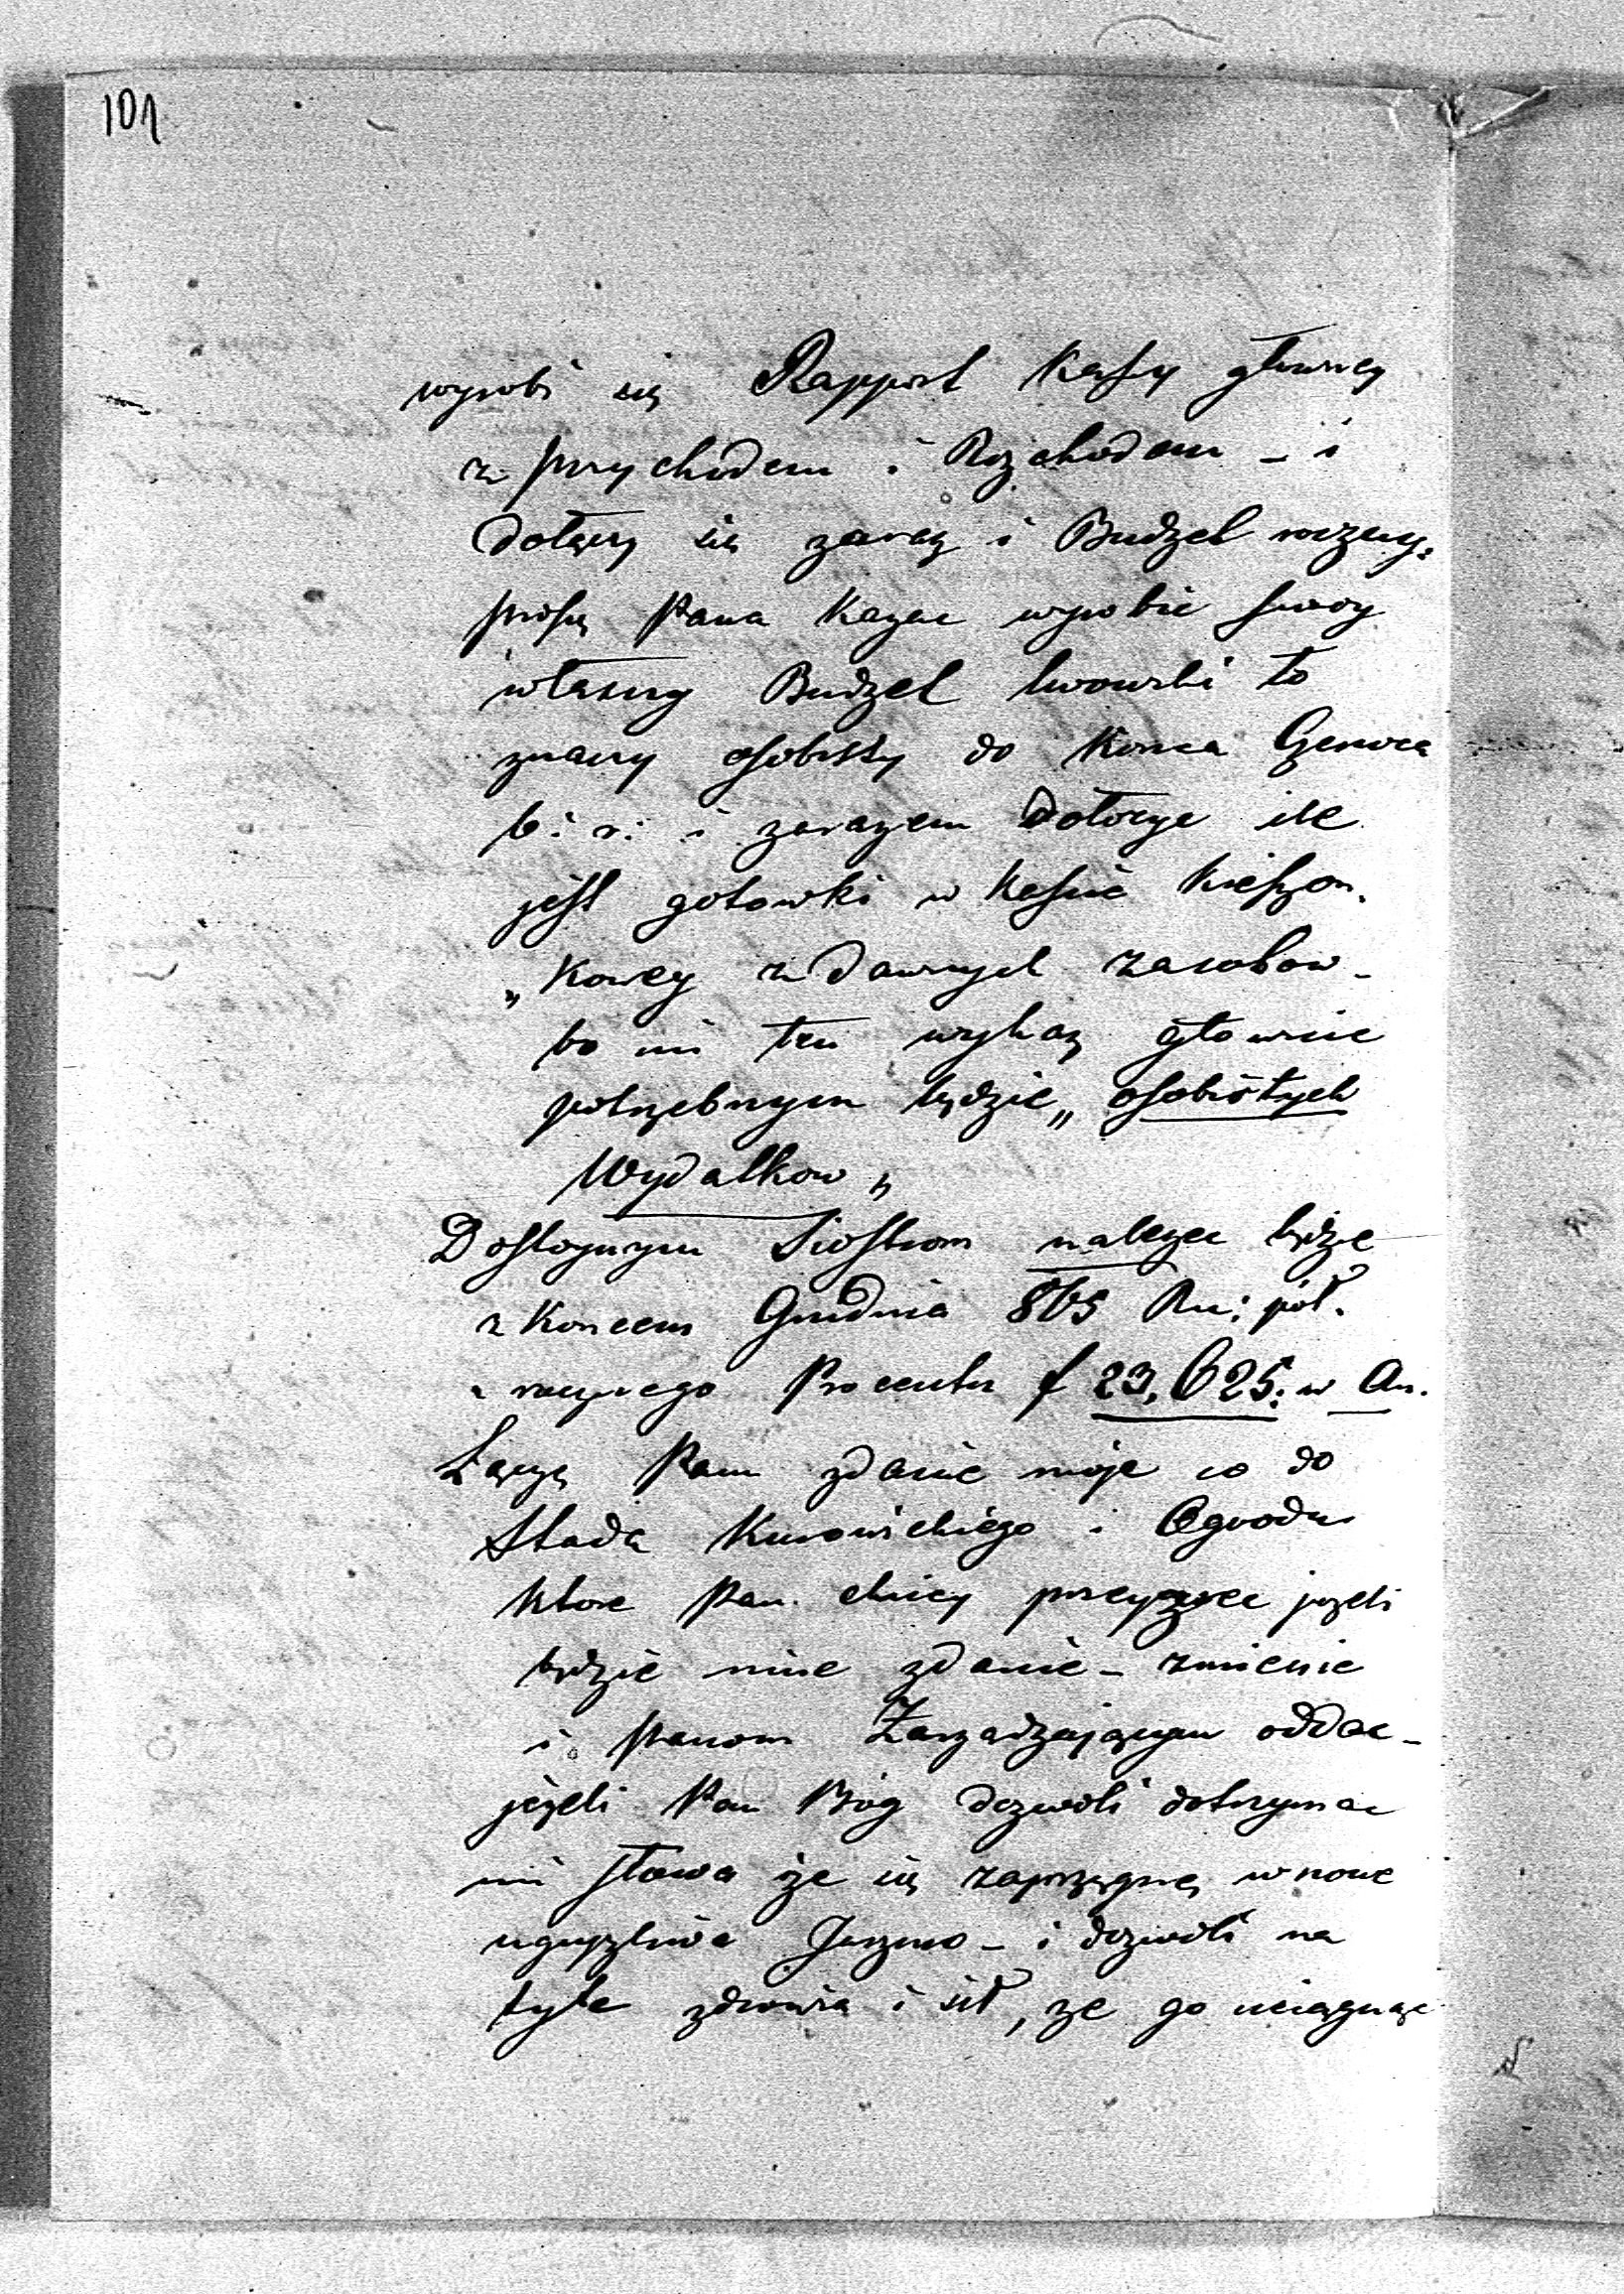 101
wyrobi się Rapport Kassy głowney
z przychodem i Rozchodem - i
dołączy się zaraz i Budzet roczny,
proszę Pana kazac wyrobic swoy
własny Budzet lwowski to
znaczy osobisty do konca Czerwca
b: r: i zarazem dołozyc ile
jest gotowki w Kassie kieszon,
„kowey z dawnych zasobow -
bo mi ten wykaz głownie
potrzebnym będzie „ osobistych
Wydatkow „
Dostoynym Siostrom nalezec będzie
z koncem Grudnia 865 Ru: poł.
rocznego Procentu f 23,625. w Au.
Łączę Panu zdanie moje co do
Stada Kurowickiego i Ogrodu
ktore Pan chciey przeyzrec jezeli
będzie inne zdanie - zmienic
i Panom Zarządzającym oddac -
jezeli Pan Bóg dozwoli dotrzymac
mi słowa że się zaprzęgnę w nowe
uciązliwe Jarzmo - i dozwoli na
tyle zdrowia i sił, ze go uciągnąc